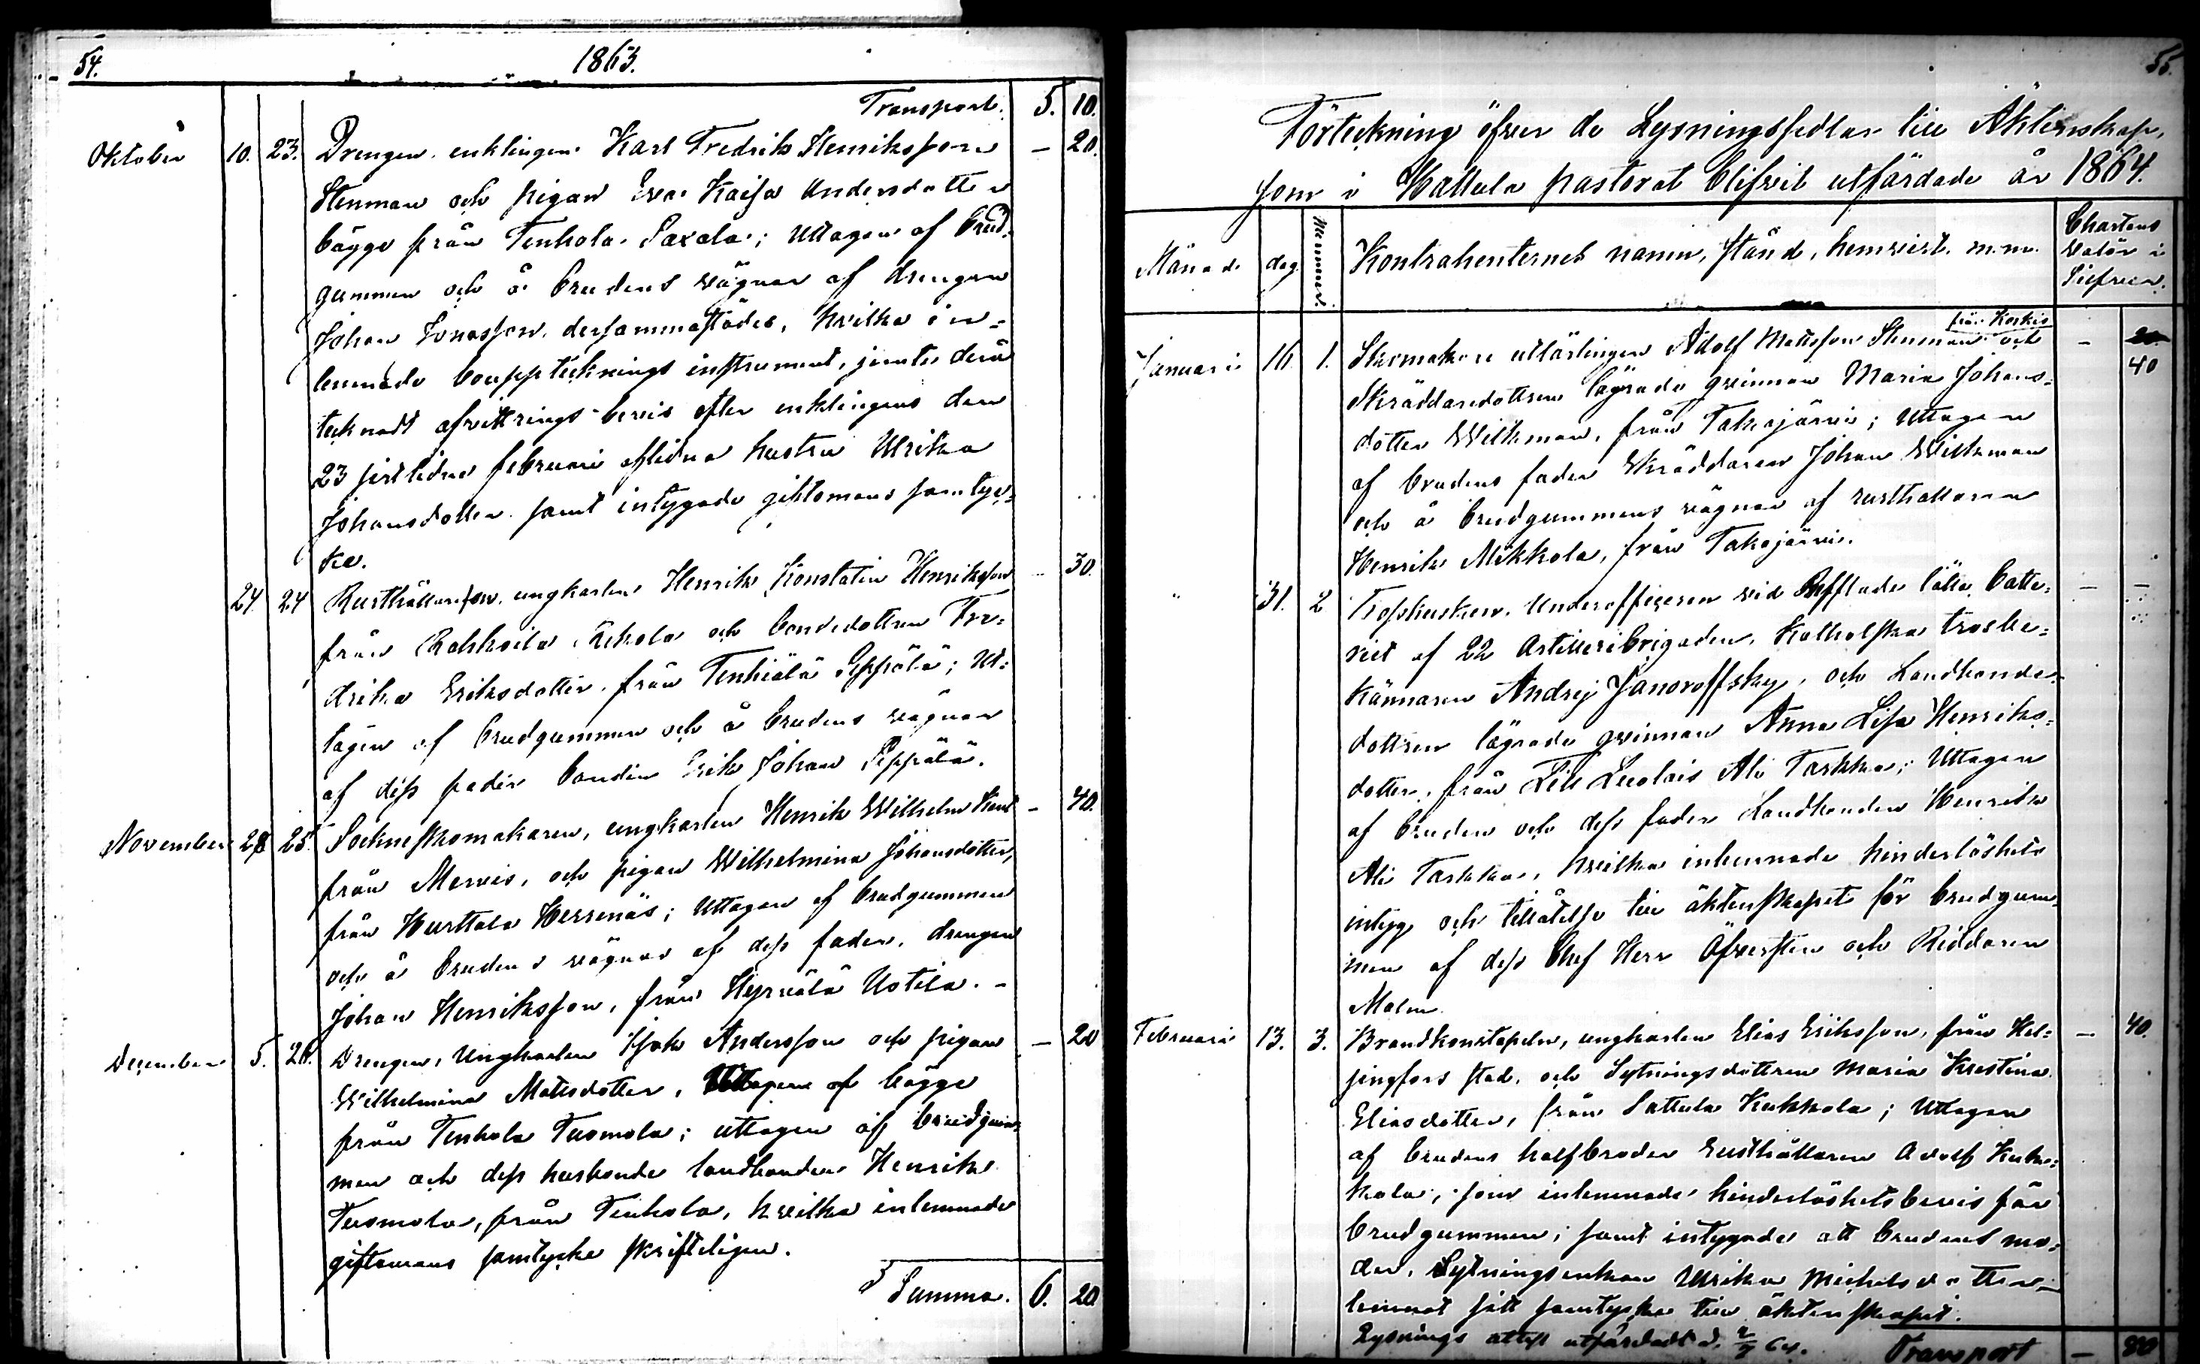 54.
1863.
Transport. 5. 10.
Oktober 10. 23. Drengen enklingen Karl Fredrik Henriksson — 20.
Stenman och pigan Eva Kaisa Andersdotter
bägge från Tenhola Saxala; Uttagen af brud-
gummen och å brudens vägnar af drengen
Johan Jonasson, dersammastädes, hvilka in-
lemnade bouppteknings instrument, jemte derå
teknadt afvittrings-bevis efter enklingens den
23 sistlidne februari aflidna hustru Ulrika
Johansdotter samt intygade giftomans samtyc-
ke.
24. 24 Rusthållareson, ungkarlen Henrik Konstatin Henriksson — 30.
från Rahkoila Rekola och bondedottren Fre-
drika Eriksdotter från Tenhiälä Seppälä; Ut-
tagen af brudgummen och å brudens vägnar
af dess fader bonden Erik Johan Seppälä.
November 28 25. Sockneskomakaren, ungkarlen Henrik Wilhelm — 40.
från Mervis, och pigan Wilhelmina Johansdotter,
från Hurttala Herrnäs; Uttagen af brudgummen
och å brudens vägnar af dess fader, drengen
Johan Henriksson, från Hyrvälä Uotila. —
December 5. 26. Drengen, Ungkarlen Isak Andersson och pigan — 20
Wilhelmina Mattsdotter, bägge
från Tenhola Tuomola; uttagen af brudgum-
men och dess husbonde landbonden Henrik
Tuomola, från Tenhola, hvilka inlemnade
giftomans samtycke skrifteligen.
Summa. 6. 20
55.
Förteckning öfver de Lysningssedlar till Äktenskap,
som i Hattula pastorat blifvit utfärdade år 1864.
Månad. dag. Nummer. Kontrahenternes namn, stånd, hemvist. m.m. Chartens valör i Silfver.
från Korkis
Januari 16. 1. Skomakare utlärlingen Adolf Mattsson Stenman och — 40
Skräddaredottren lägrade qvinnan Maria Johans-
dotter Wilkman, från Takajärvi; Uttagen
af brudens fader Skräddaren Johan Wilkman
och å brudgummens vägnar af rusthållaren
Henrik Mikkola, från Takajärvi.
" 31. 2 Trosskusken, Underofficeren vid lätta batte- — —
riet af 22 Artilleribrigaden, Katholska trosbe-
kännaren Andrej Janovoffsky, och Landbonde-
dottren lägrade qvinnan Anna Lisa Henriks-
dotter, från Lill Luolais Ali Tarkka; Uttagen
af bruden och dess fader Landbonden Henrik
Ali Tarkka, hvilka inlemnade hinderlöshets
intyg och tillåtelse till äktenskapet för brudgum-
men af dess Chef Herr Öfversten och Riddaren
Malm.
Februari 13. 3. Brandkonstapeln, ungkarlen Elias Eriksson, från Hel- — 40.
singfors stad, och Sytningsdottren Maria Kristina
Eliasdotter, från Sattula Kukkola; Uttagen
af brudens halfbroder rusthållaren Adolf Kuk-
kola, som inlemnade hinderlöshetsbevis för
brudgummen, samt intygade att brudens mo-
der, Sytningsenkan Ulrika Michelsdotter
lemnat sitt samtycke till äktenskapet.
Lysnings attest utfärdadt d. 64. Transport — 80